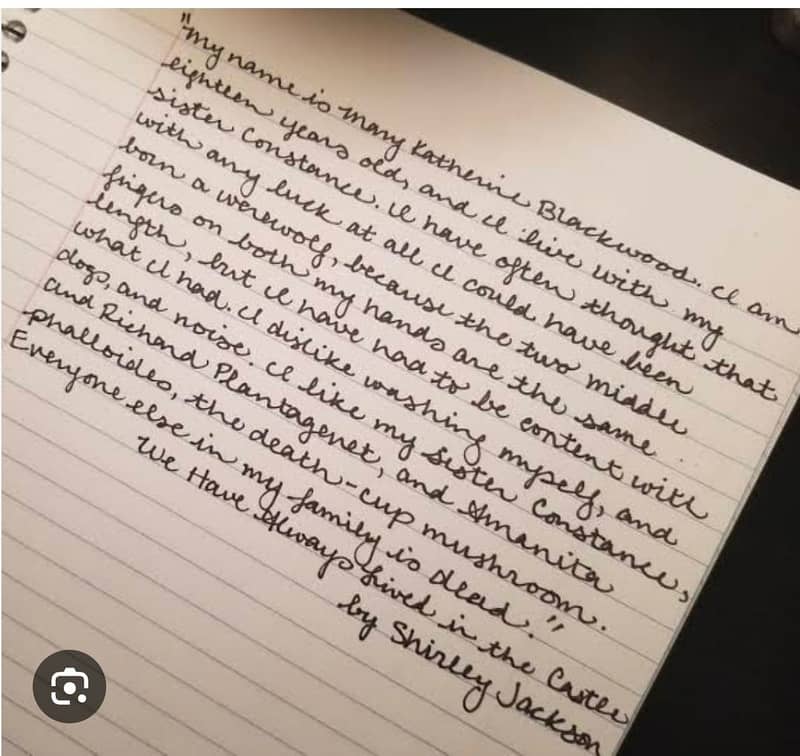 "My name is Mary Katherine Blackwood. I am
eighteen years old, and I live with my
sister Constance. I have often thought that
with any luck at all I could have been
born a werewolf, because the two middle
figers on both my hands are the same
length, but I have had to be content with
what I had. I dislike washing myself, and
dogs, and noise. I like my sister Constance,
and Richard Plantagenet, and Amanita
phalloides, the death-cup mushroom.
Everyone else in my family is dead."
We Have Always Lived in the Castle
by Shirley Jackson